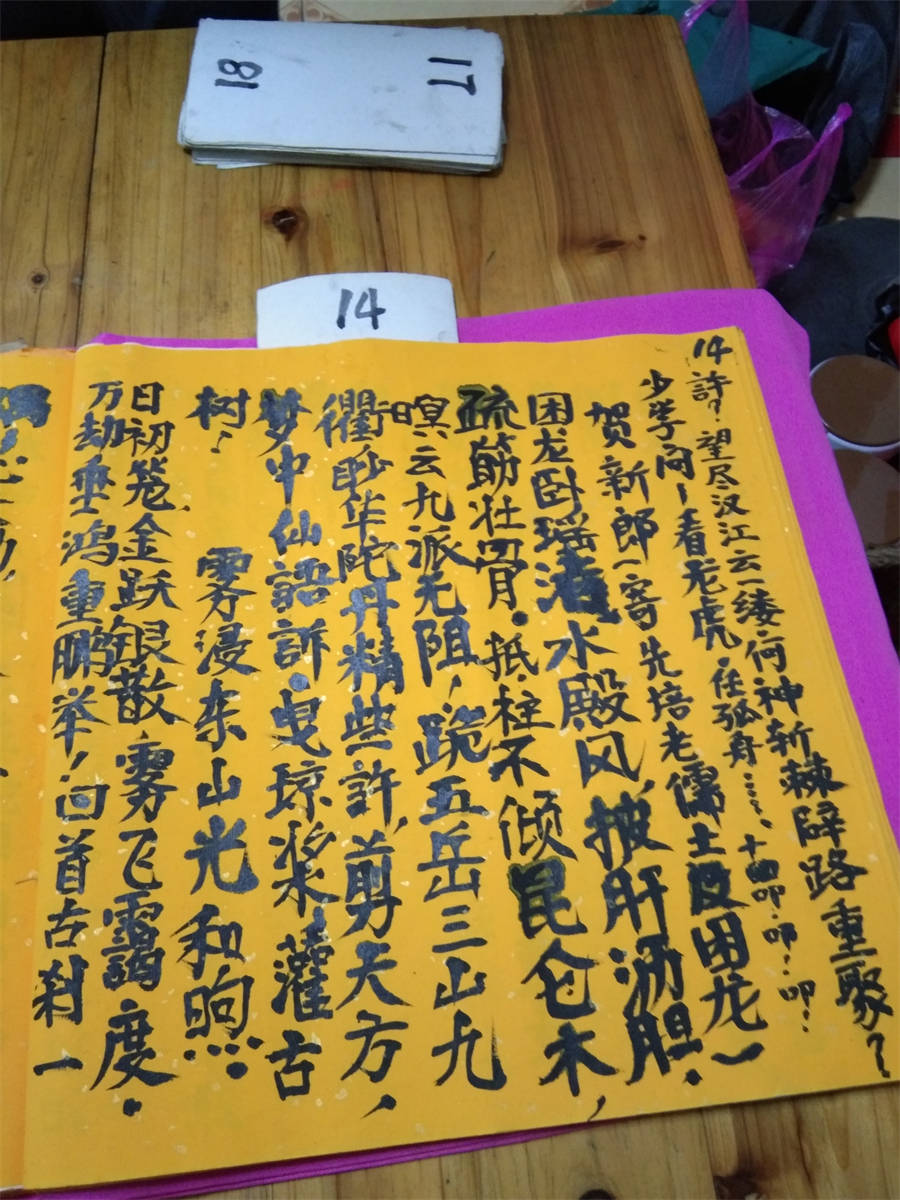 18
17
14
14
許？望尽汉江云一缕何神斩棘辟路重聚？
少学问一看龙虎.任孤身……、十四叩.叩..叩..
贺新郎（寄先培老儒士及困龙）
困龙卧瑶渚水殿风，披肝沥胆.
疏筋壮骨.抵柱不倾昆仑木，
暝云九派无阻，跪五岳三山九
衢.眇华陀丹精些許，剪天方，
梦中仙語訴.曳琼浆灌古
树！
雾浸东山光和煦……
日初笼金跃银散.雾飞靄度.
万劫垂鸿重鹏举！回首古刹一